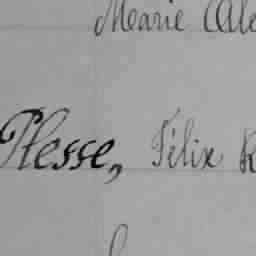 Marie Ale
Plesse, Félix R